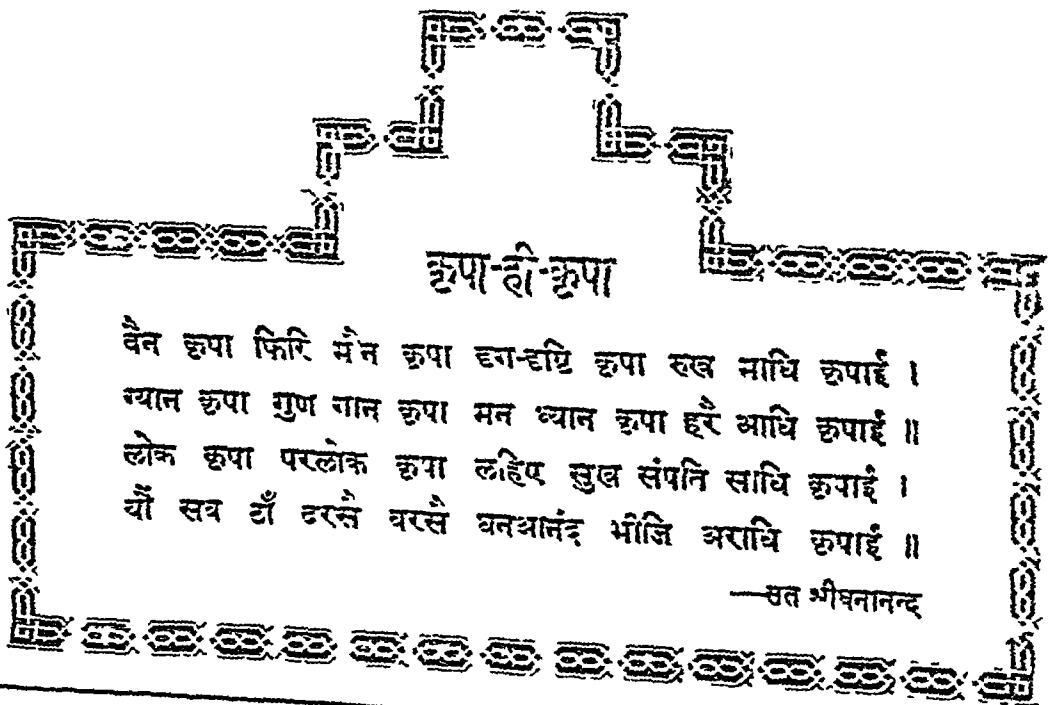 कृपा-ही-कृपा
बैन कृपा फिरि मौन कृपा दृग-दृष्टि कृपा रुख माधि कृपाई ।
ग्यान कृपा गुण गान कृपा मन ध्यान कृपा हरै आधि कृपाई ॥
लोक कृपा परलोक कृपा लहिए सुख संपति साधि कृपाई ।
यौं सब ठाँ दरसै बरसै घनआनंद भीजि अराधि कृपाई ॥
—संत श्रीघनानन्द